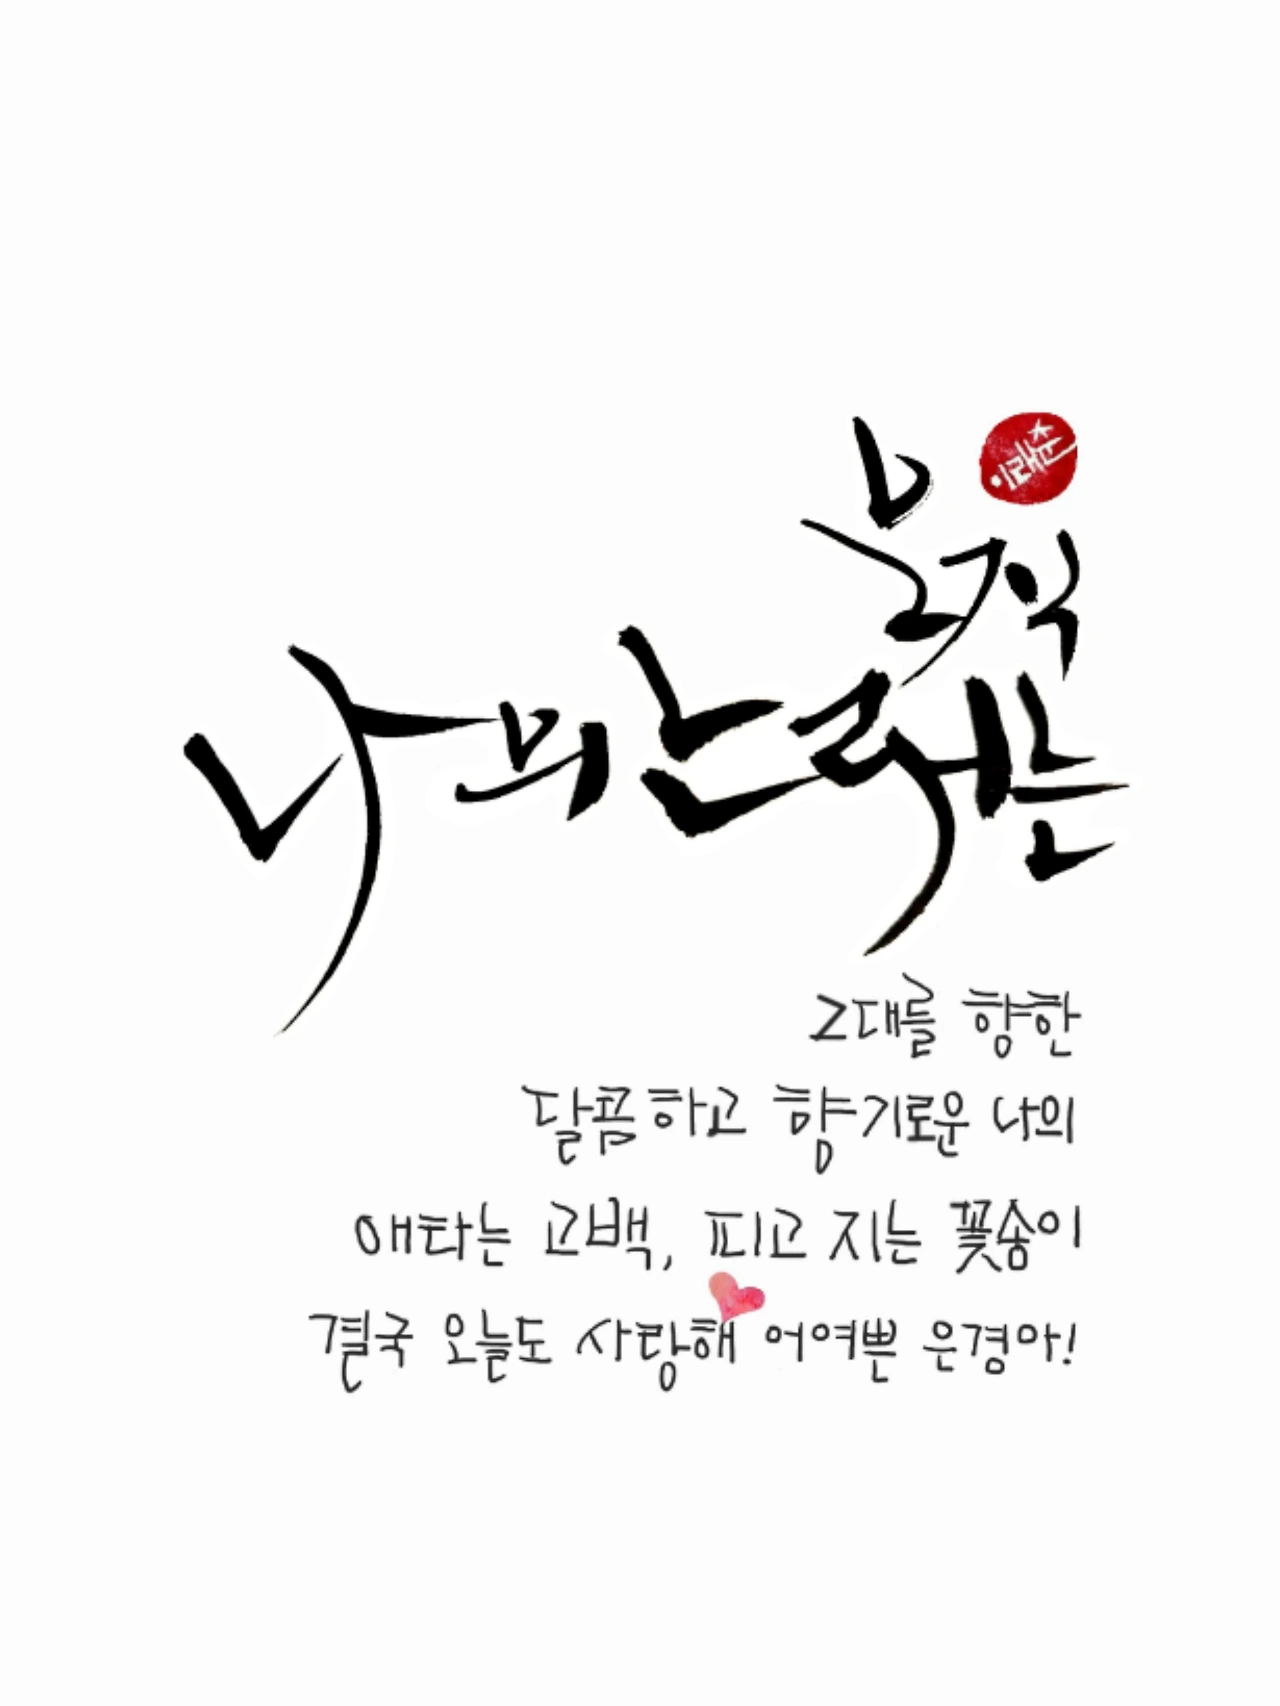 이래춘
나의 노래는 오직
그대를 향한
달콤하고 향기로운 나의
애타는 고백, 피고 지는 꽃송이
결국 오늘도 사랑해 어여쁜 은경아!